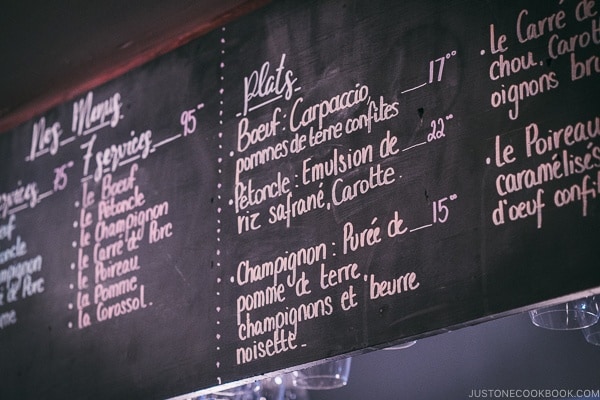 Nos Menus
7 services 95
Le Boeuf
Le Pétoncle
Le Champignon
Le Carré de Porc
Le Poireau
La Pomme
La Corossol.
Plats
Boeuf: Carpaccio, 17°°
pommes de terre confites
Pétoncle: Emulsion de 22°°
riz safrané, Carotte.
15°°
Champignon: Purée de
pomme de terre,
champignons et beurre
noisette.
Le Carré de
chou, Carot
oignons
Le Poireau
caramélisés
d'oeuf confi
JUSTONECOOKBOOK.COM